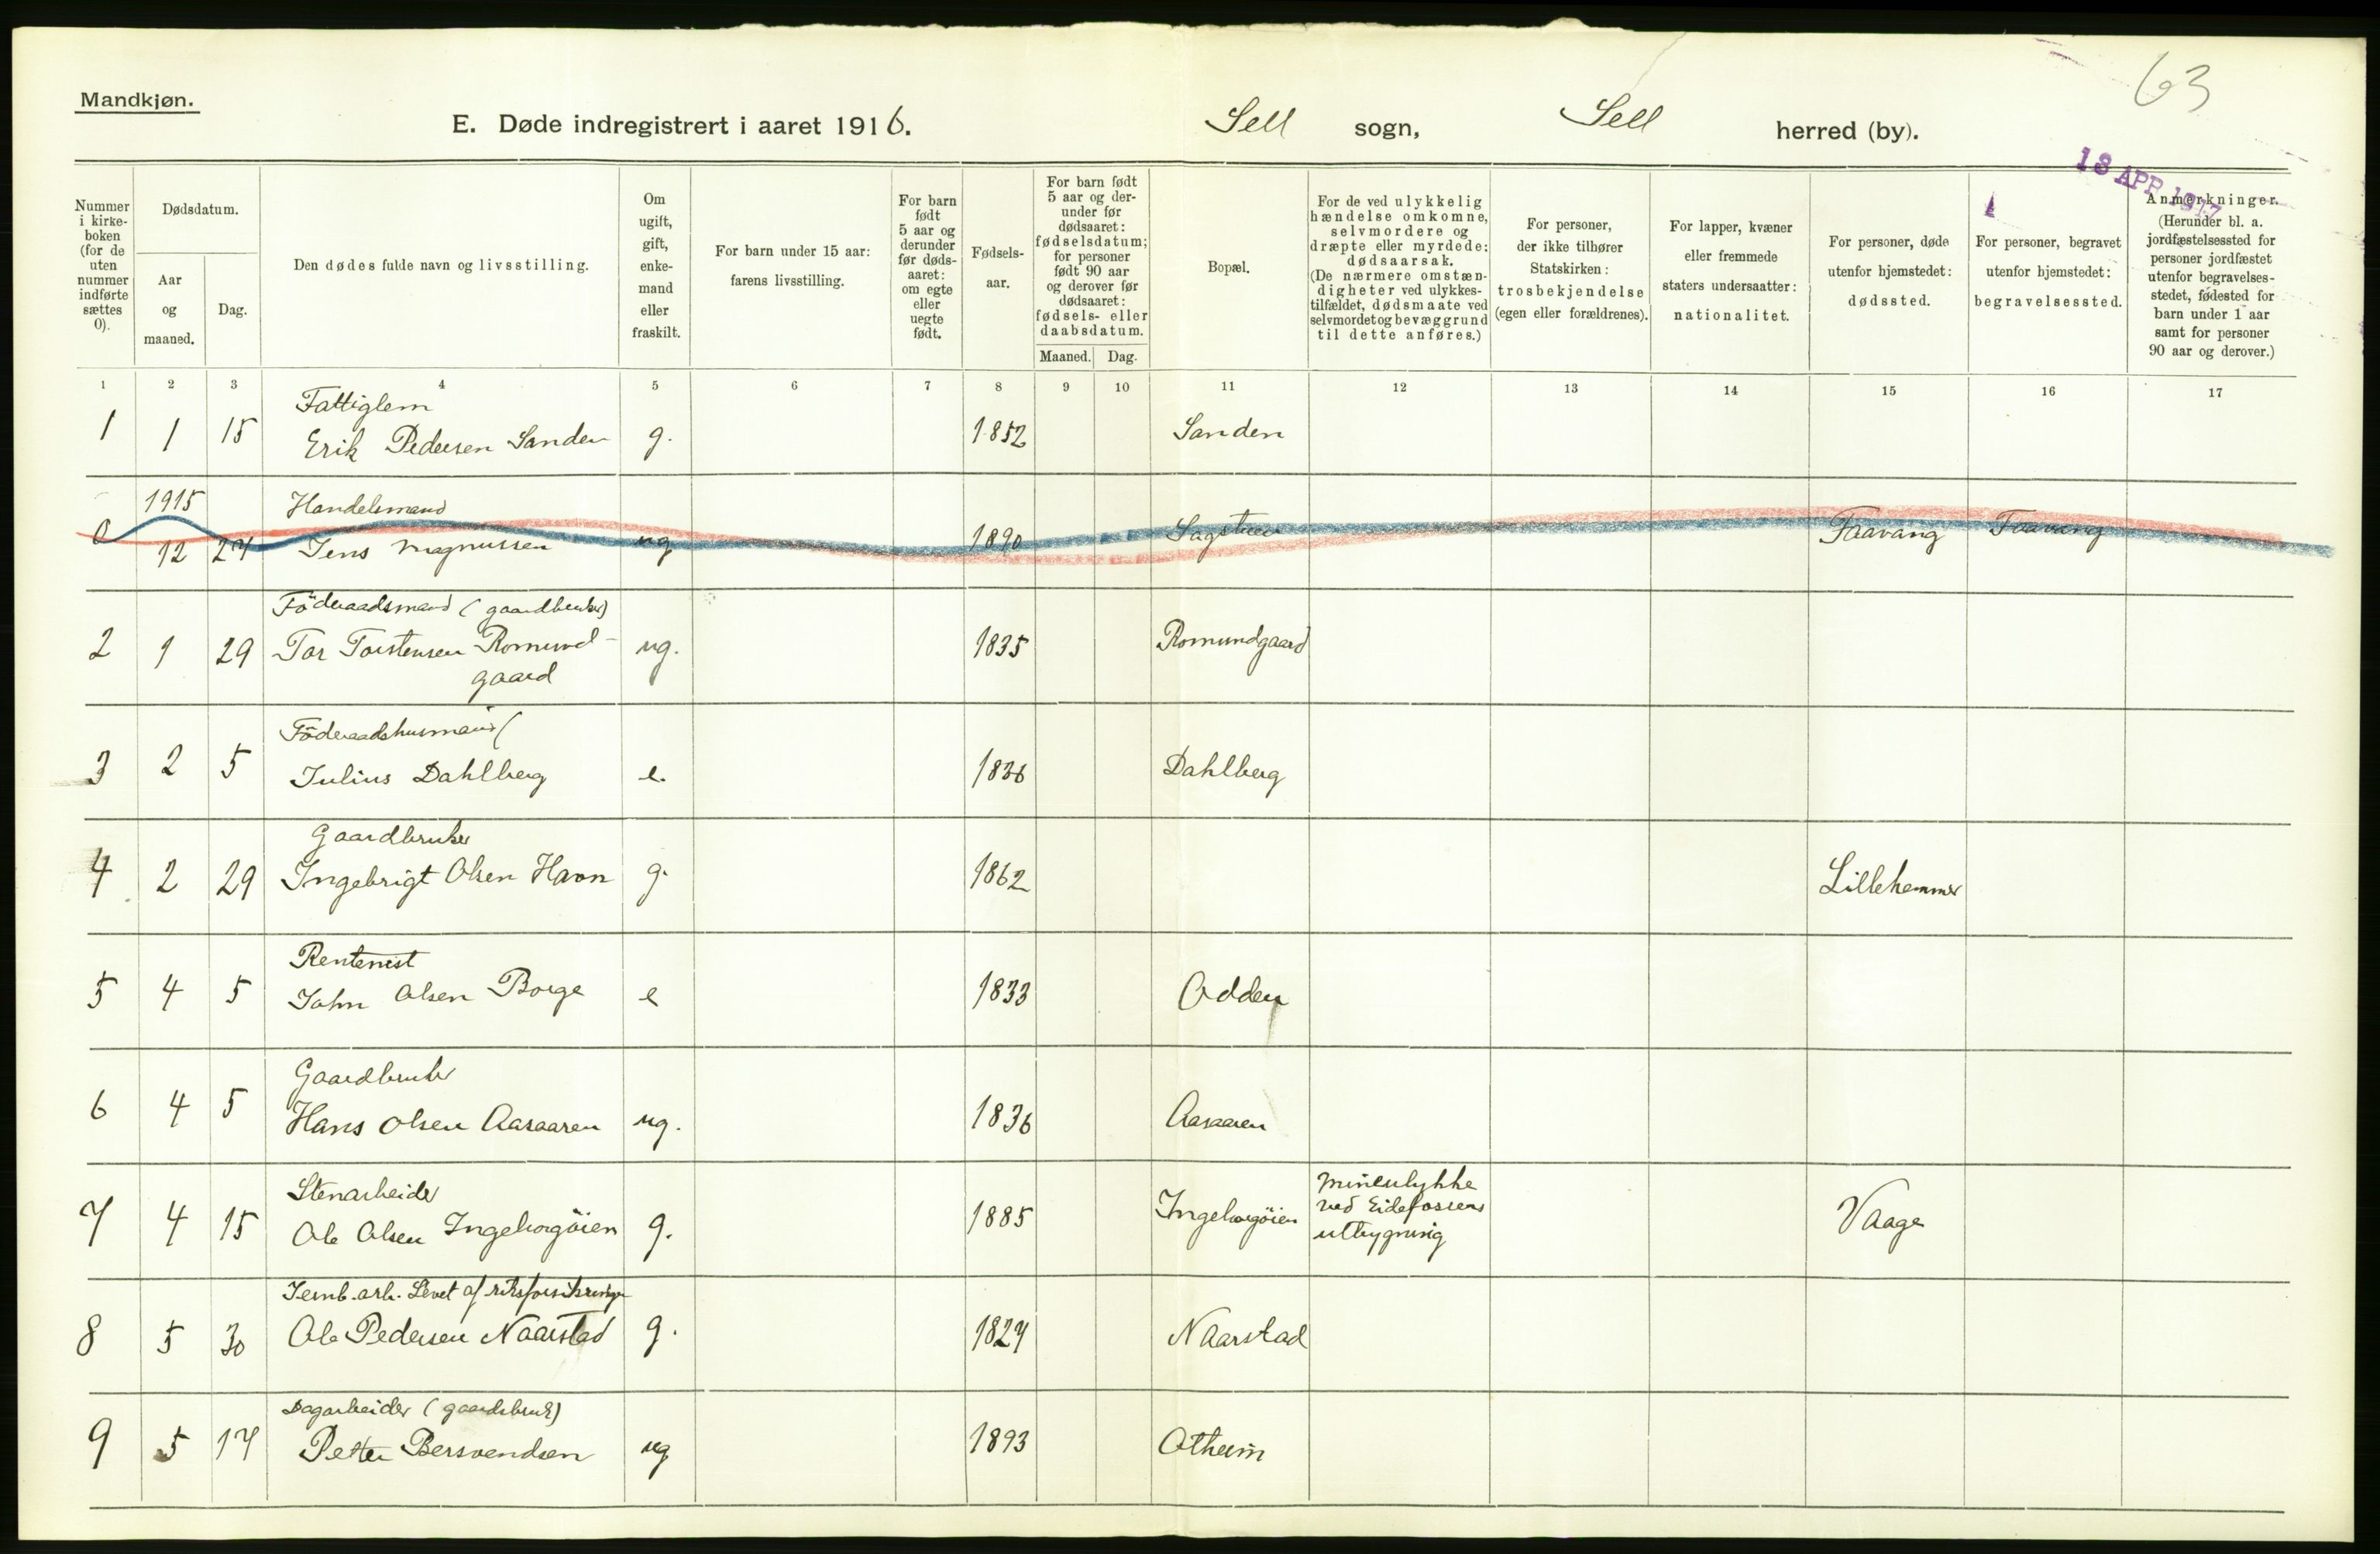 63
Mandkjøn.
E. Døde indregistrert i aaret 1916. Sell sogn, Sell herred (by).
18 APR. 1917
Nummer i kirke-boken (for de uten nummer indførte sættes 0).
Dødsdatum.
Aar og maaned.
Dag.
Den dødes fulde navn og livsstilling.
Om ugift, gift, enke-mand eller fraskilt.
For barn under 15 aar: farens livsstilling.
For barn født 5 aar og derunder før døds-aaret: om egte eller uegte født.
Fødsels-aar.
For barn født 5 aar og der-under før dødsaaret: fødselsdatum; for personer født 90 aar og derover før dødsaaret: fødsels- eller daabsdatum.
Maaned. Dag.
Bopæl.
For de ved ulykkelig hændelse omkomne, selvmordere og dræpte eller myrdede: dødsaarsak. (De nærmere omstæn-digheter ved ulykkes-tilfældet, dødsmaate ved selvmordet og bevæggrund til dette anføres.)
For personer, der ikke tilhører Statskirken: trosbekjendelse (egen eller forældrenes).
For lapper, kvæner eller fremmede staters undersaatter: nationalitet.
For personer, døde utenfor hjemstedet: dødssted.
For personer, begravet utenfor hjemstedet: begravelsessted.
Anmerkninger. (Herunder bl. a. jordfæstelsessted for personer jordfæstet utenfor begravelses-stedet, fødested for barn under 1 aar samt for personer 90 aar og derover.)
1 2 3 4 5 6 7 8 9 10 11 12 13 14 15 16 17
Fattiglem
1 1 15 Erik Pedersen Sanden g. 1852 Sanden
1915 Handelsmand
0 12 27 Jens Magnussen ug 1890 Sagstuen Faavang Faavang
Föderaadsmand (gaardbruker)
2 1 29 Tor Torstensen Romund-gaard ug. 1835 Romundgaard
Föderaadshusmand (
3 2 5 Julius Dahlberg e. 1836 Dahlberg
Gaardbruker
4 2 29 Ingebrigt Olsen Havn g. 1862 Lillehammer
Rentenist
5 4 5 John Olsen Borge e 1833 Odden
Gaardbruker
6 4 5 Hans Olsen Aasaaren ug. 1836 Aasaaren
Stenarbeider
7 4 15 Ole Olsen Ingeborgöien g. 1885 Ingeborgöien Mineulykke ved Eidefossens utbygning Vaage
Jernb. arb. Levet af
8 5 30 Ole Pedersen Naarstad g. 1827 Naarstad
Dagarbeider (gaardsbruk)
9 5 17 Petter Bersvendsen ug 1893 Otheim